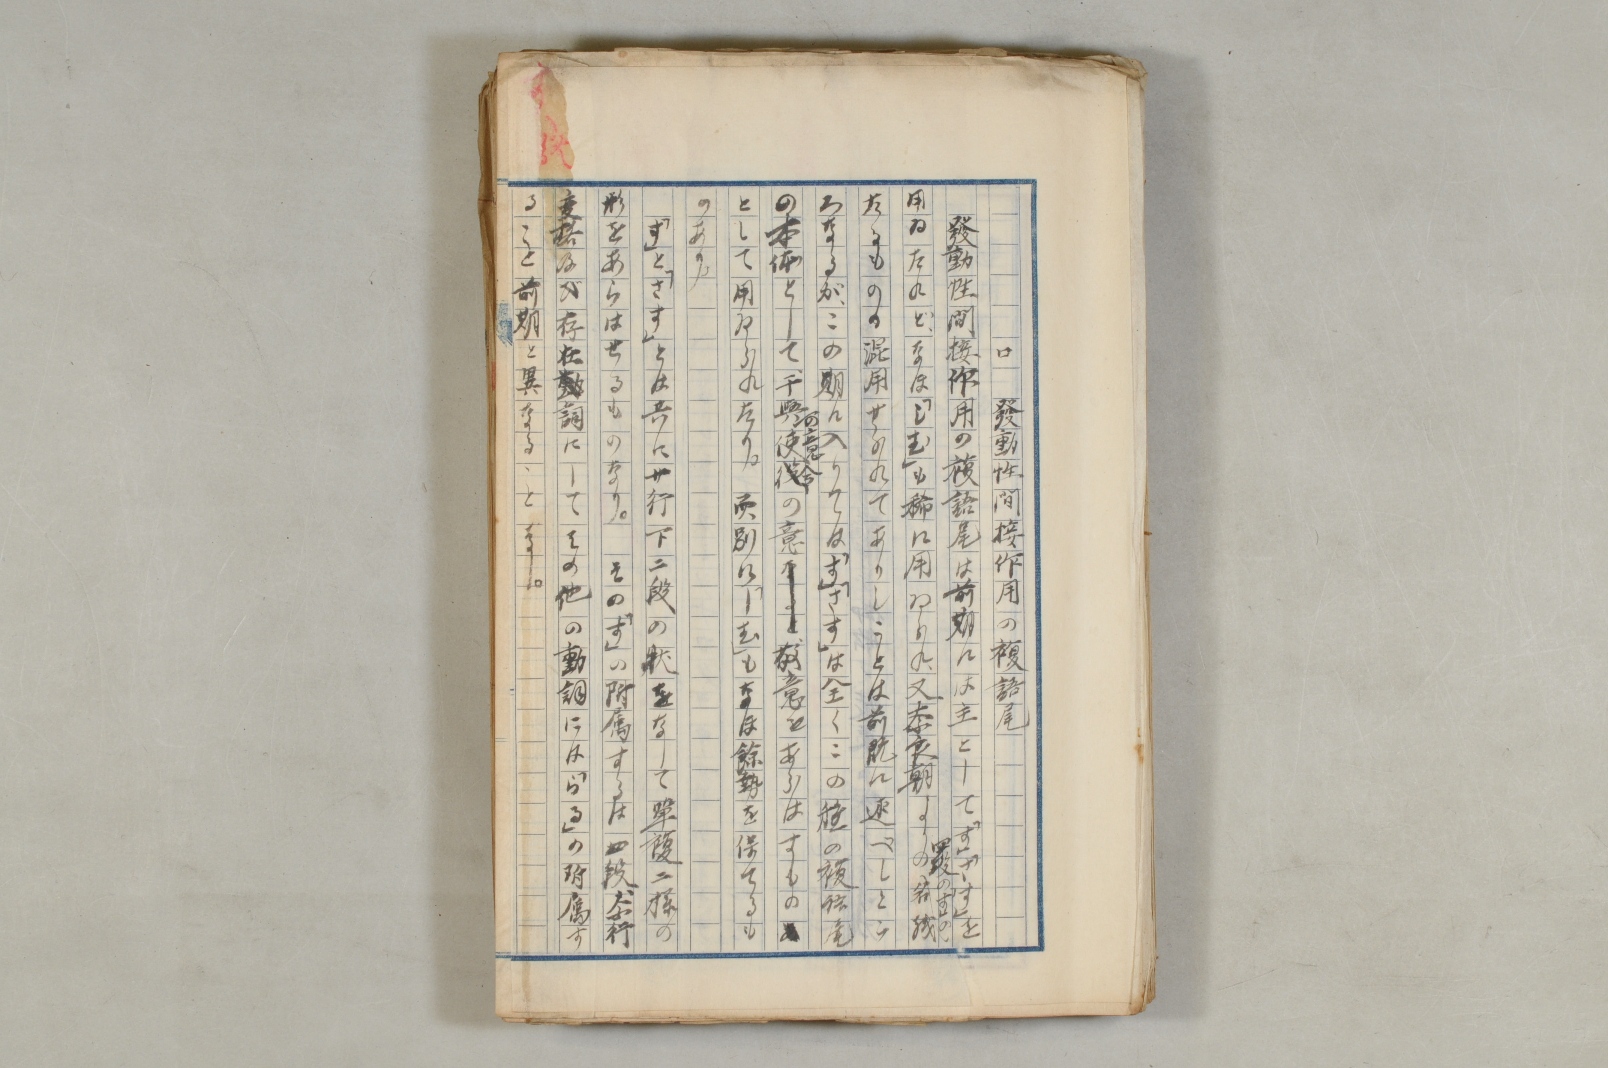 ロ 發動性間接作用の複語尾
發動性間接作用の複語尾は前期には主として「す」「さす」を
用ゐたれど、なほ「しむ」も稀に用ゐられ、又奈良朝よりの名残
四段の「す」の、
たるものの混用せられてありしことは前既に述べしとこ
ろなるが、この期に入りては「す」「さす」は全くこの種の複語尾
の本体として、干與使役の意
敬意をあらはすもの
として用ゐられたり。而別に「しむ」もなほ餘勢を保てるも
のあり。
「す」と「さす」とは共にサ行下二段の形をなして單複二樣の
形をあらはせるものなり。その「す」の附属するは四段、奈行
変格及び存在動詞にしてその他の動詞には「らる」の附属す
ること前期と異なることなし。